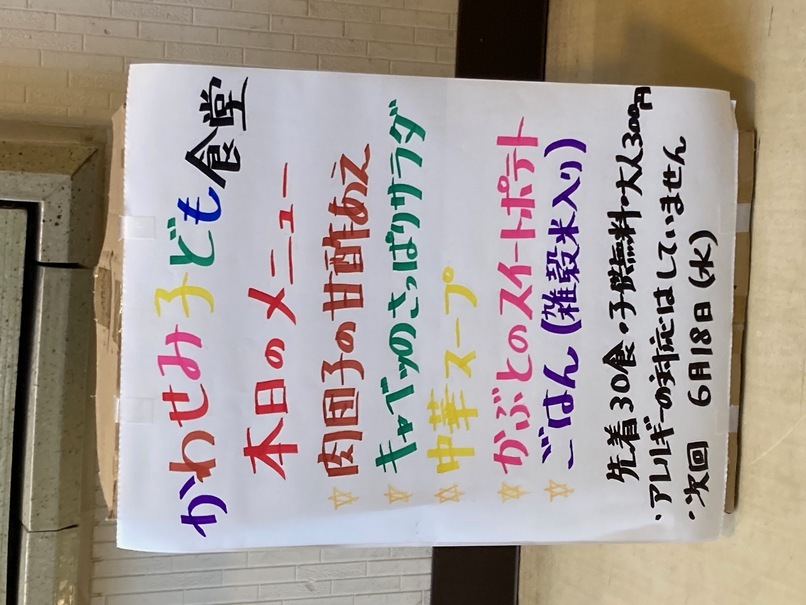 かわせみ子ども食堂
本日のメニュー
☆肉団子の甘酢あえ
☆キャベツのさっぱりサラダ
☆中華スープ
☆かぶとのスイートポテト
☆ごはん(雑穀米入り)
先着30食・子供無料・大人300円
・アレルギーの対応はしていません
・次回 6月18日(水)